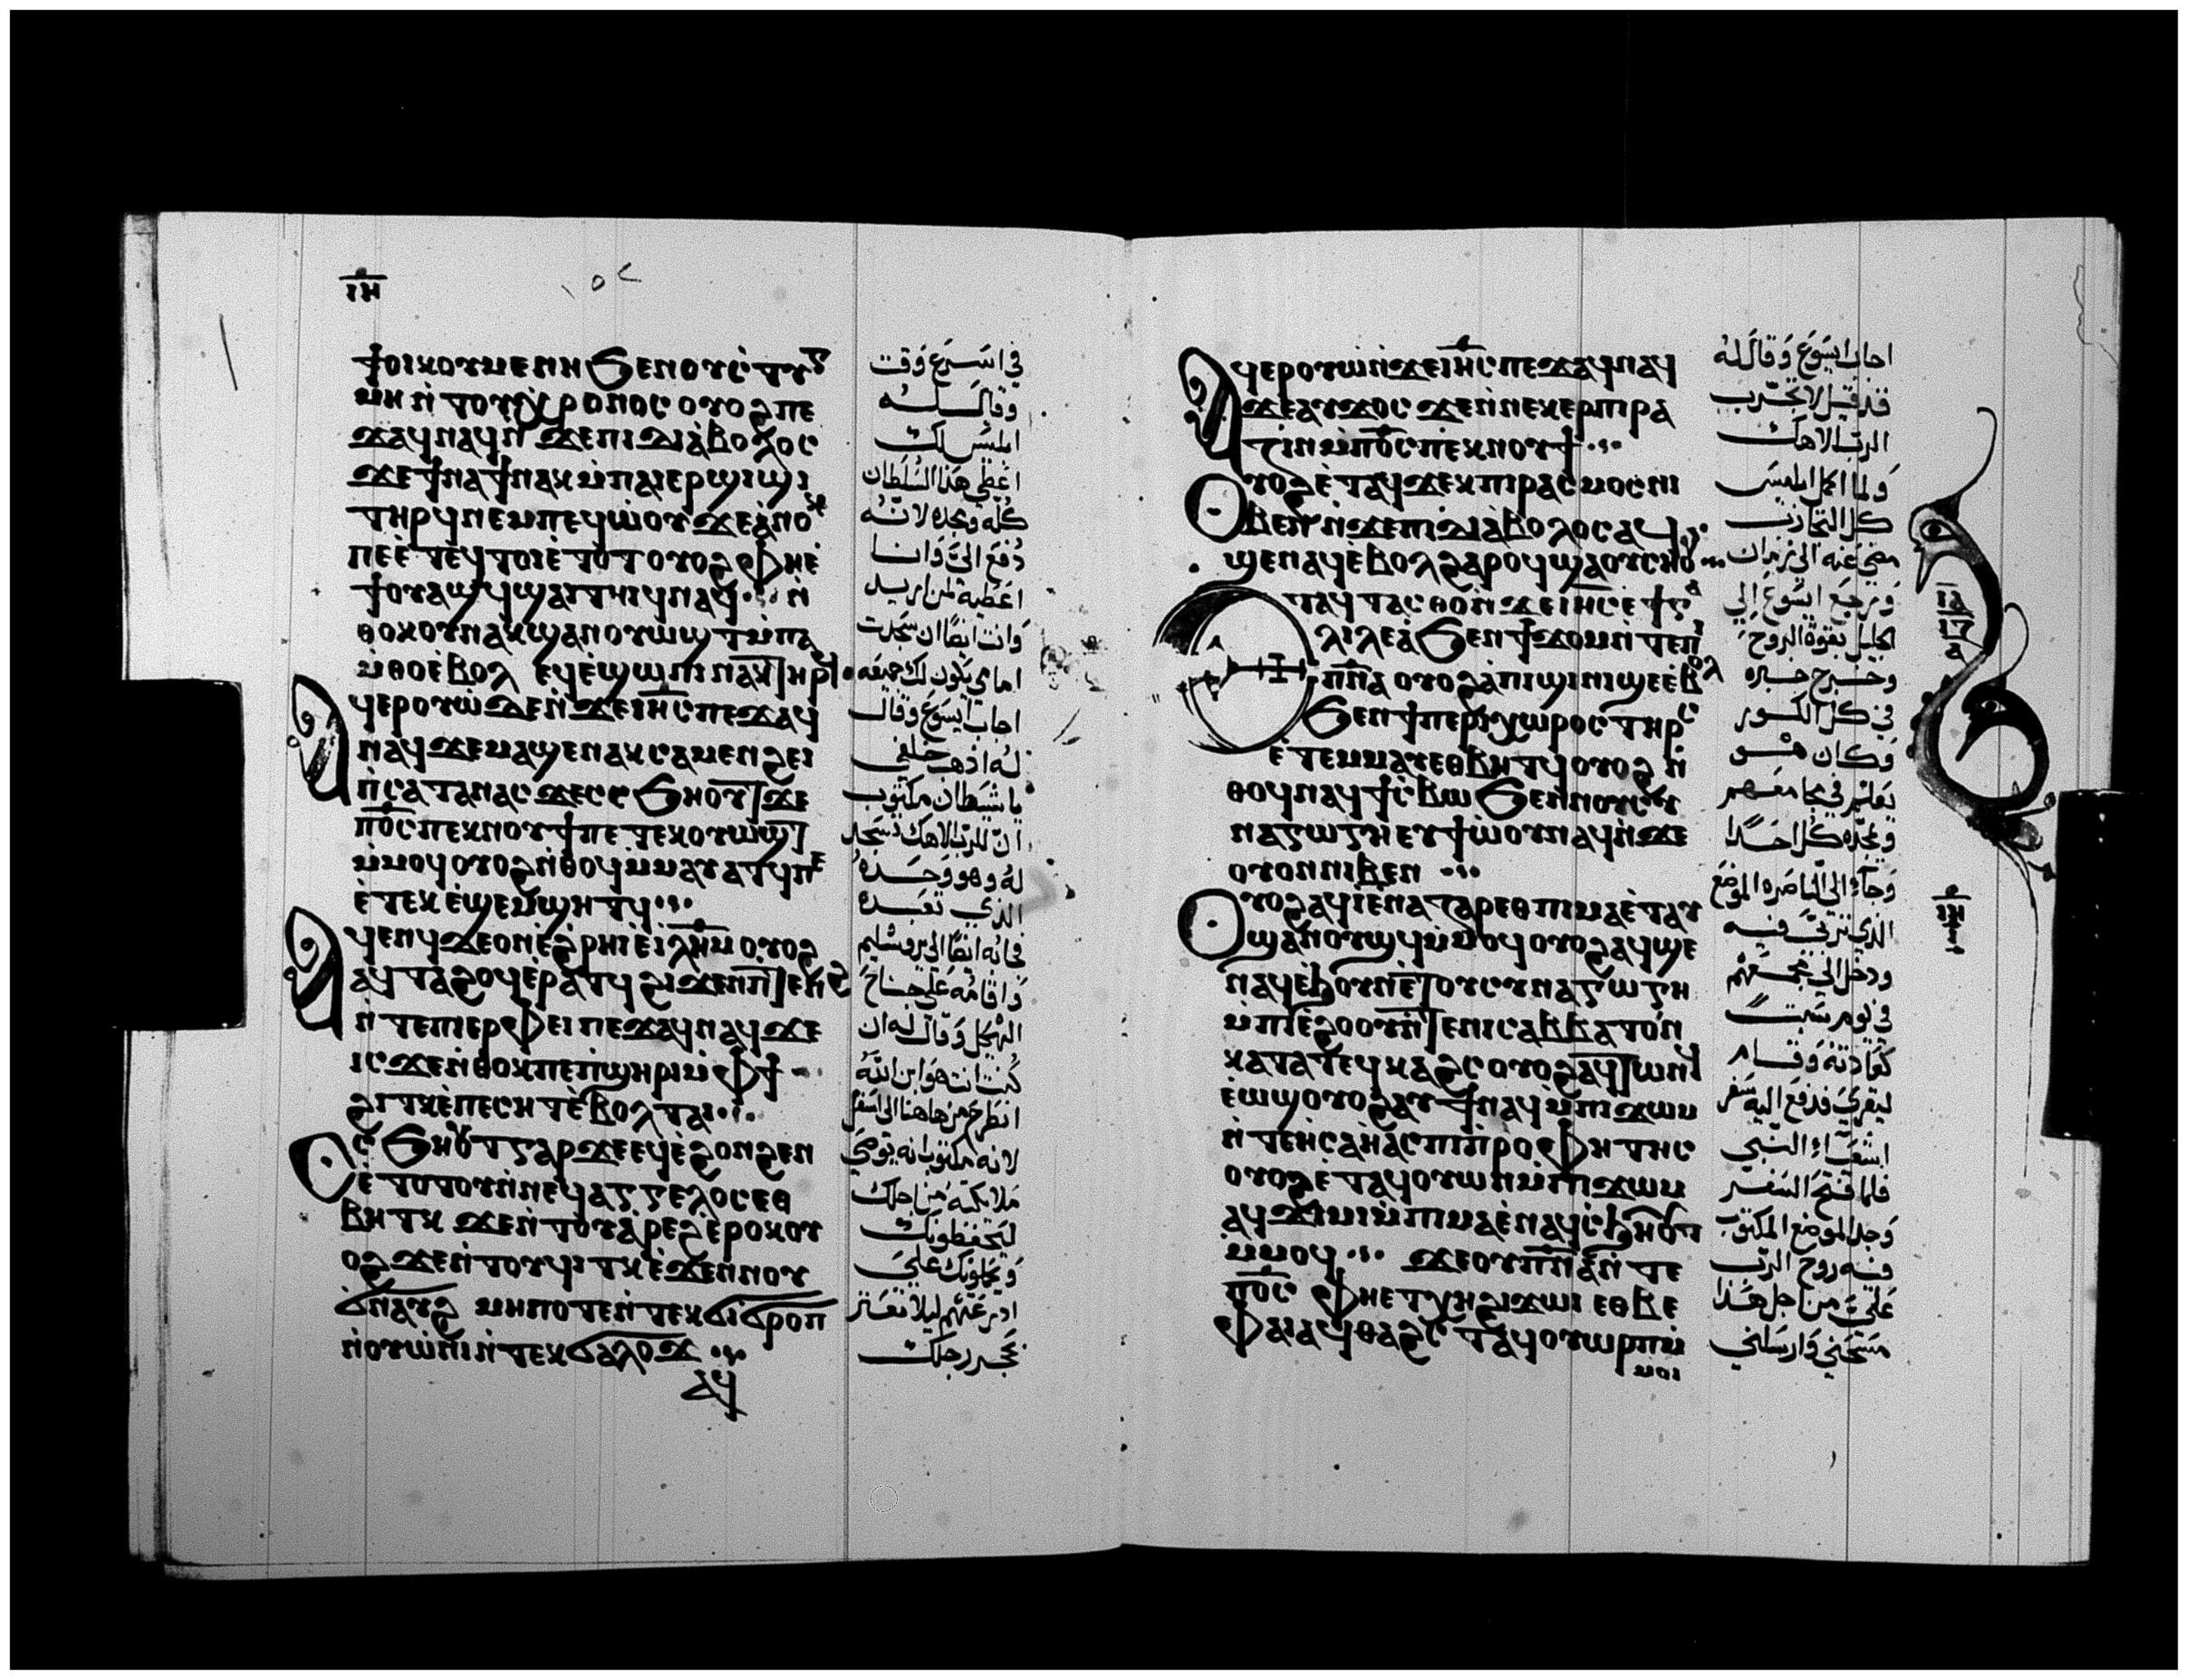 ⲓⲏ
ϯⲟⲓⲕⲟⲩⲙⲉⲛⲏ ϧⲉⲛⲟⲩⲥⲧⲩⲅ
ⲙⲏ ⲛ̀ⲧⲟⲩⲭⲣⲟⲛⲟⲥ ⲟⲩⲟϩ ⲡⲉ
ϫⲁϥⲛⲁϥⲛ̀ϫⲉⲡⲓⲇⲓⲁⲃⲟⲗⲟⲥ
ϫⲉϯⲛⲁϯⲛⲁⲕⲙ̀ⲡⲁⲓⲉⲣϣⲓϣⲓ
ⲧⲏⲣϥⲛⲉⲙⲡⲉϥⲱⲟⲩ ϫⲉⲁⲛⲟⲕ
ⲡⲉⲉ̀ⲧⲉⲩⲧⲟⲓⲉ̀ⲧⲟⲧ ⲟⲩⲟϩ ⲫⲏⲉ̀
ϯⲟⲩⲁϣϥϣⲁⲓⲧⲏⲓϥⲛⲁϥ ⲛ̀
ⲑⲟⲕ ⲟⲩⲛ ⲁⲕϣⲁⲛⲟⲩⲱϣⲧ ⲙ̀ⲡⲁ
ⲙ̀ⲑⲟⲉ̀ⲃⲟⲗ ⲉϥⲉ̀ϣⲱⲡⲓ ⲛⲁⲕⲧⲏⲣϥ
ⲁϥⲉⲣⲟⲩⲱ̀ ⲇⲉ ⲛ̀ϫⲉⲓⲏⲥ ⲡⲉϫⲁϥ
ⲛⲁϥ ϫⲉⲙⲁϣⲉⲛⲁⲕ ⲥⲁⲙⲉⲛϩⲏⲓ
ⲡ̀ⲥⲁⲧⲁⲛⲁⲥ ϫⲉⲥⲥϧⲏⲟⲩⲧ ϫⲉ
ⲡ̅ⲟ̅ⲥ̅ ⲡⲉⲕⲛⲟⲩϯ ⲡⲉⲧⲉⲕⲟⲩⲱϣⲧ
ⲙ̀ⲙⲟϥ ⲟⲩⲟϩ ⲛ̀ⲑⲟϥ ⲙ̀ⲙⲁⲩⲁⲧϥⲡⲉ
ⲉ̀ⲧⲉⲕⲉ̀ϣⲉⲙϣⲏⲧϥ
ⲁϥⲉⲛϥ ⲇⲉ ⲟⲛ ⲉ̀ϩⲣⲏⲓ ⲉ̀ⲓⲗⲏⲙ ⲟⲩⲟϩ
ⲁϥⲧⲁϩⲟϥ ⲉ̀ⲣⲁⲧϥ ϩⲓϫⲉⲛⲡⲧⲉⲛϩ
ⲛ̀ⲧⲉⲡⲓⲉⲣⲫⲉⲓ ⲡⲉϫⲁϥⲛⲁϥ ϫⲉ
ⲓⲥϫⲉⲛ̀ⲑⲟⲕⲡⲉⲡ̀ϣⲏⲣⲓⲙ̀ⲫϯ
ϩⲓⲧⲕⲉ̀ⲡⲉⲥⲏⲧ ⲉ̀ⲃⲟⲗⲧⲁⲓ
ⲥϧⲏⲟⲩⲧ ⲅⲁⲣ ϫⲉϥⲉ̀ϩⲟⲛϩⲉⲛ
ⲉ̀ⲧⲟⲧⲟⲩⲛ̀ⲛⲉϥⲁⲅⲅⲉⲗⲟⲥ ⲉⲑ
ⲃⲏⲧⲕ ϫⲉⲛ̀ⲧⲟⲩⲁ̀ⲣⲉϩ ⲉ̀ⲣⲟⲕ ⲟⲩ
ⲟϩ ϫⲉⲛ̀ⲧⲟⲩϥⲓⲧⲕ ⲉ̀ϫⲉⲛⲛⲟⲩ
ϭⲛⲁⲩϩ ⲙⲏⲡⲟⲧⲉ ⲛ̀ⲧⲉⲕϭⲓϭⲣⲟⲡ
ⲛ̀ⲟⲩⲱ̀ⲛⲓ ⲛ̀ⲧⲉⲕϭⲁⲗⲟϫ
ⲁϥ
في اسرع وقت
وقال له
ابليس لك
اعطي هذا السلطان
كله ومجده لانه
دفع الي وانا
اعطيه لمن اريد
وانت ايضا ان سجدت
امامي يكون لك جميعه
اجاب ايسوع وقال
له اذهب خلفي
يا شيطان مكتوب
ان للرب الاهك تسجد
له وهو وحده
الذي تعبده
فجابه ايضا الى يروشليم
واقامه على جناح
الهيكل وقال له ان
كنت انت هو ابن الله
انطرح من هاهنا الى اسفل
لانه مكتوب انه يوصي
ملايكته من اجلك
ليحفظونك
ويحملونك على
ايديهم ليلا تعثر
بحجر رجلك
ⲁϥⲉⲣⲟⲩⲱ̀ ⲛ̀ϫⲉⲓⲏⲥ ⲡⲉϫⲁϥⲛⲁϥ
ϫⲉⲁⲩϫⲟⲥ ϫⲉⲛ̀ⲛⲉⲕⲉⲣⲡⲓⲣⲁ
ⲍⲓⲛ ⲙ̀ⲡ̅ⲟ̅ⲥ̅ ⲡⲉⲕⲛⲟⲩϯ
ⲟⲩⲟϩ ⲉ̀ⲧⲁϥϫⲉⲕⲡⲓⲣⲁⲥⲙⲟⲥ ⲛⲓ
ⲃⲉⲛ ⲛ̀ϫⲉⲡⲓⲇⲓⲁⲃⲟⲗⲟⲥ ⲁϥ
ϣⲉⲛⲁϥ ⲉ̀ⲃⲟⲗϩⲁⲣⲟϥ ϣⲁⲟⲩⲥⲏⲟⲩ
ⲉⲧⲁϥⲧⲁⲥⲑⲟ ⲛ̀ϫⲉⲓⲏⲥ ⲉ̀ϯⲅⲁ
ⲗⲓⲗⲉⲁ̀ ϧⲉⲛϯϫⲟⲙ ⲛ̀ⲧⲉⲡⲓ
ⲡⲛⲁ ⲟⲩⲟϩ ⲁⲡⲓϣⲓⲛⲓ ϣⲉ ⲉ̀ⲃⲟⲗ
ϧⲉⲛϯⲡⲉⲣⲓⲭⲱⲣⲟⲥ ⲧⲏⲣⲥ
ⲉ̀ⲧⲉⲙⲙⲁⲩ ⲉⲑⲃⲏⲧϥ ⲟⲩⲟϩ ⲛ̀
ⲑⲟϥ ⲛⲁϥϯⲥⲃⲱ ϧⲉⲛⲛⲟⲩⲥⲩ
ⲛⲁⲅⲱⲅⲏ ⲉⲩϯⲱ̀ⲟⲩ ⲛⲁϥ ⲛ̀ϫⲉ
ⲟⲩⲟⲛⲛⲓⲃⲉⲛ
ⲟⲩⲟϩ ⲁϥⲓ̀ ⲉ̀ⲛⲁⲍⲁⲣⲉⲑ ⲡⲓⲙⲁ ⲉ̀ⲧⲁⲩ
ϣⲁⲛⲟⲩϣϥ ⲙ̀ⲙⲟϥ ⲟⲩⲟϩ ⲁϥϣⲉ
ⲛⲁϥ ⲉ̀ϧⲟⲩⲛ ⲉ̀ⲧⲟⲩⲥⲩⲛⲁⲅⲱⲅⲏ
ⲙ̀ⲡⲓⲉ̀ϩⲟⲟⲩ ⲛ̀ⲧⲉⲛⲓⲥⲁⲃⲃⲁⲧⲟⲛ
ⲕⲁⲧⲁⲧⲉϥⲕⲁϩⲥ ⲟⲩⲟϩ ⲁϥⲧⲱⲛϥ
ⲉ̀ⲱϣ ⲟⲩⲟϩ ⲁⲩϯⲛⲁϥ ⲙ̀ⲡⲓϫⲱⲙ
ⲛ̀ⲧⲉⲏ̀ⲥⲁⲏ̀ⲁⲥ ⲡⲓⲡⲣⲟⲫⲏⲧⲏⲥ
ⲟⲩⲟϩ ⲉ̀ⲧⲁϥⲟⲩⲱⲛ ⲙ̀ⲡⲓϫⲱⲙ
ⲁϥϫⲓⲙⲓ ⲙ̀ⲡⲓⲙⲁ ⲉ̀ⲛⲁϥⲥϧⲏⲟⲩⲧ
ⲙ̀ⲙⲟϥ ϫⲉⲟⲩⲡⲛⲁ ⲛ̀ⲧⲉ
ⲡ̅ⲟ̅ⲥ̅ ⲫⲏⲉⲧⲭⲏ ϩⲓϫⲱⲓ ⲉⲑⲃⲉ
ⲫⲁⲓ ⲁϥⲑⲁϩⲥⲧ ⲁϥⲟⲩⲱⲣⲡ ⲙ̀
ⲙⲟⲓ
اجاب ايسوع وقال له
قد قيل لا تجرب
الرب الاهك
ولما اكمل ابليس
كل التجارب
مضى عنه الى زمان
ورجع ايسوع الي
الجليل بقوة الروح
وخرج خبره
في كل الكور
وكان هو
يعلم في مجامعهم
ويمجده كل احد
وجاء الى الناصره الموضع
الذي تربى فيه
ودخل الى مجمعهم
في يوم سبت
كعادته وقام
ليقرى فدفع اليه سفر
اشعياء النبي
فلما فتح السفر
وجد الموضع المكتوب
فيه روح الرب
علي من اجل هذا
مسحني وارسلني
ⲓⲁ
ⲓⲍ
ⲁ
ⲓⲏ